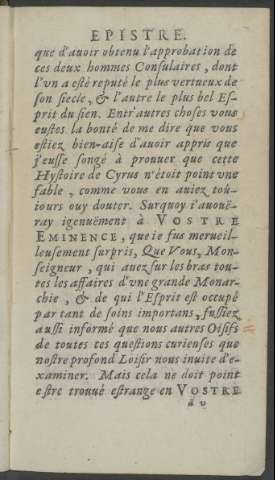 EPISTRE.
que d'auoir obtenu l'approbation de
ces deux hommes Consulaires, dont
l'vn a esté reputé le plus vertueux de
son siecle, & l'autre le plus bel Es-
prit du sien. Entr'autres choses vous
eustes la bonté de me dire que vous
estiez bien-aise d'auoir appris que
j'eusse songé à prouuer que cette
Hystoire de Cyrus n'étoit point vne
fable, comme vous en auiez tou-
iours ouy douter. Surquoy i'auouë-
ray igenuëment à VOSTRE
EMINENCE, que ie fus merueil-
leusement surpris, Que Vous, Mon-
seigneur, qui auez sur les bras tou-
tes les affaires d'vne grande Monar-
chie, & de qui l'Esprit est occupé
par tant de soins importans, fussiez
aussi informé que nous autres Oisifs
de toutes ces questions curieuses que
nostre profond Loisir nous inuite d'e-
xaminer. Mais cela ne doit point
estre trouué estrange en VOSTRE
á v